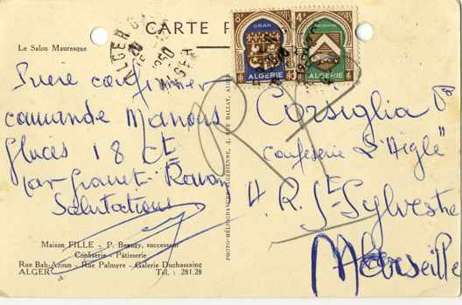 CARTE
Le Salon Mauresque
ALGER
ORAN
ALGERIE
ALGERIE
Prière confirmer
commande Marrons
Glacés 18 Ct
par Granet-Ravan
Salutations
Corsiglia
Confiserie "d'Aigle"
4 R. St-Sylvestre
Marseille
Maison FILLE - P. Beauzy, successeur
Confiserie - Pâtisserie
Rue Bab-Azoun - Rue Palmyre - Galerie Duchassaing
ALGER Tél. : 281.28